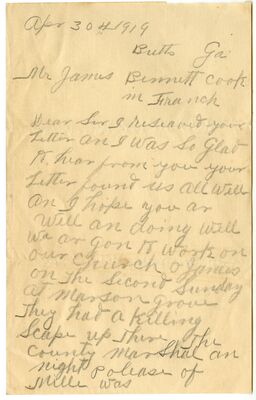 Apr 30th 1919
Butts Ga
Mr James Bennett Cook
in Franch
Dear Sir I reseaved your
Letter an I was so Glad
to hear from you your
Letter found us all Well
an I hope you ar
Well an doing Well
We ar gon to Work on
our Church O James
on the Second Sunday
at Marson grove
they had a Killing
Scape up There The
County Marshal an
night Polease of
Mille was